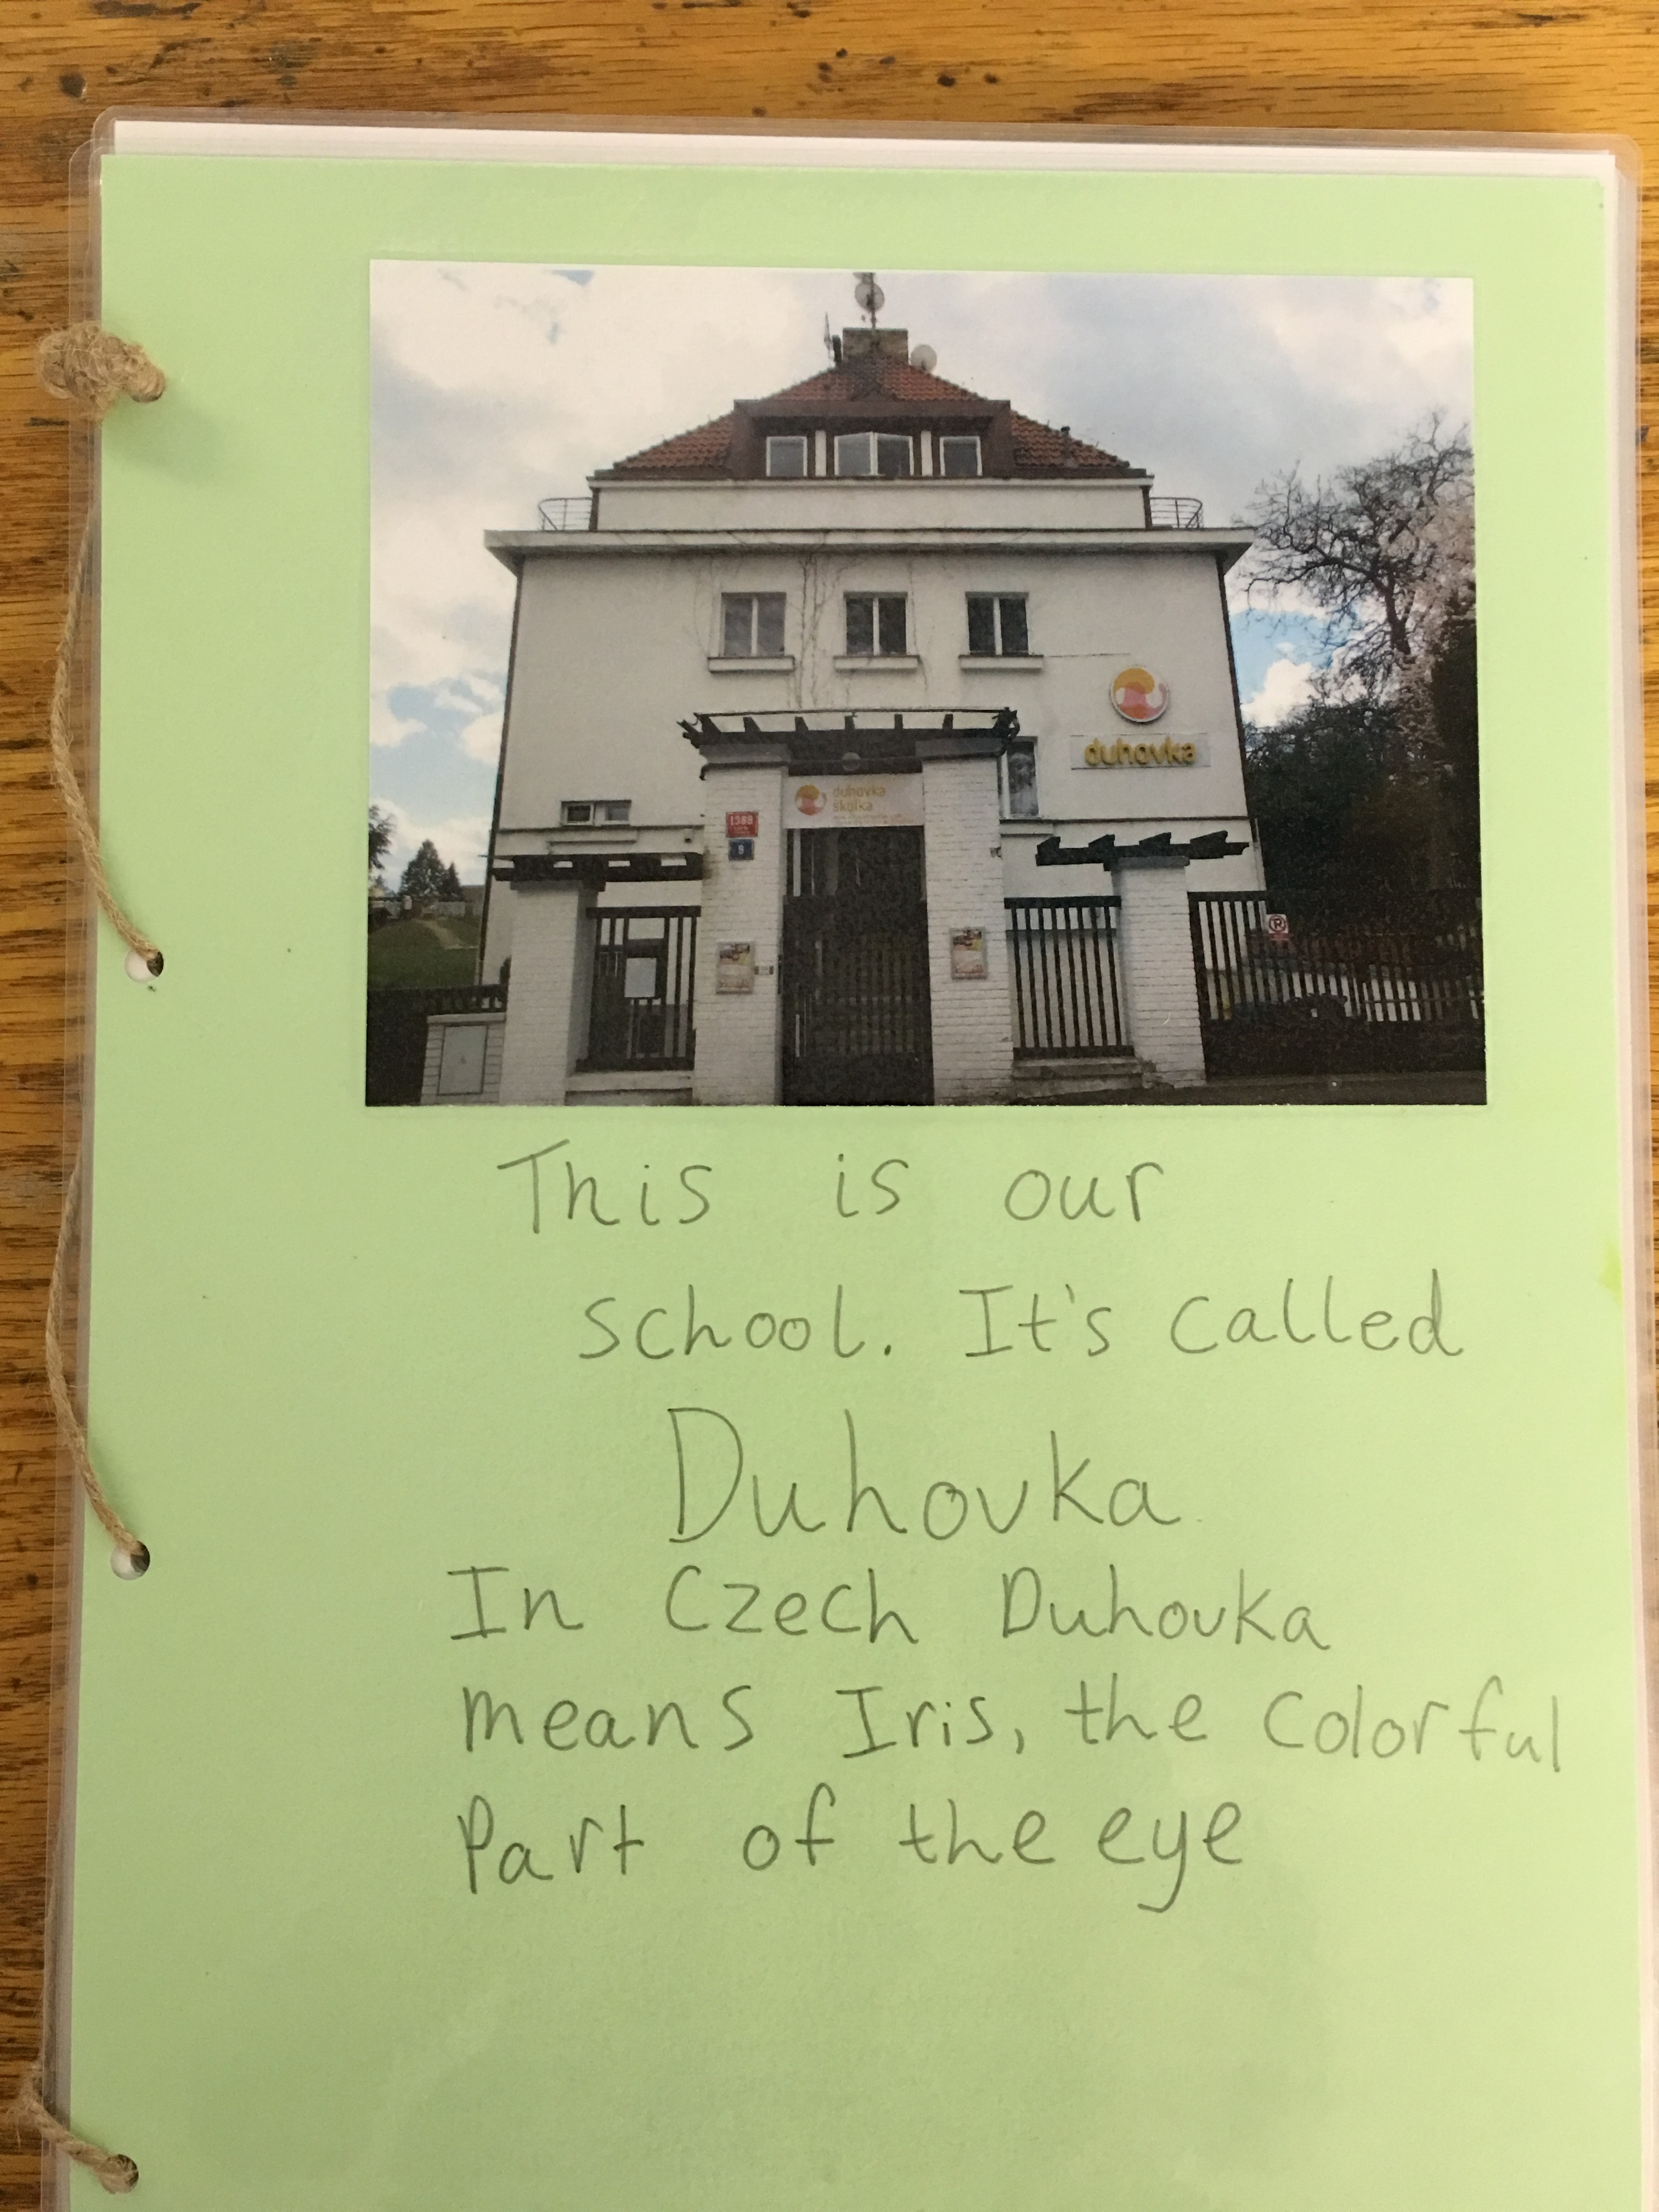 duhovka
duhovka
školka
1388
9
This is our
school. It's called
Duhovka
In Czech Duhovka
means Iris, the colorful
Part of the eye